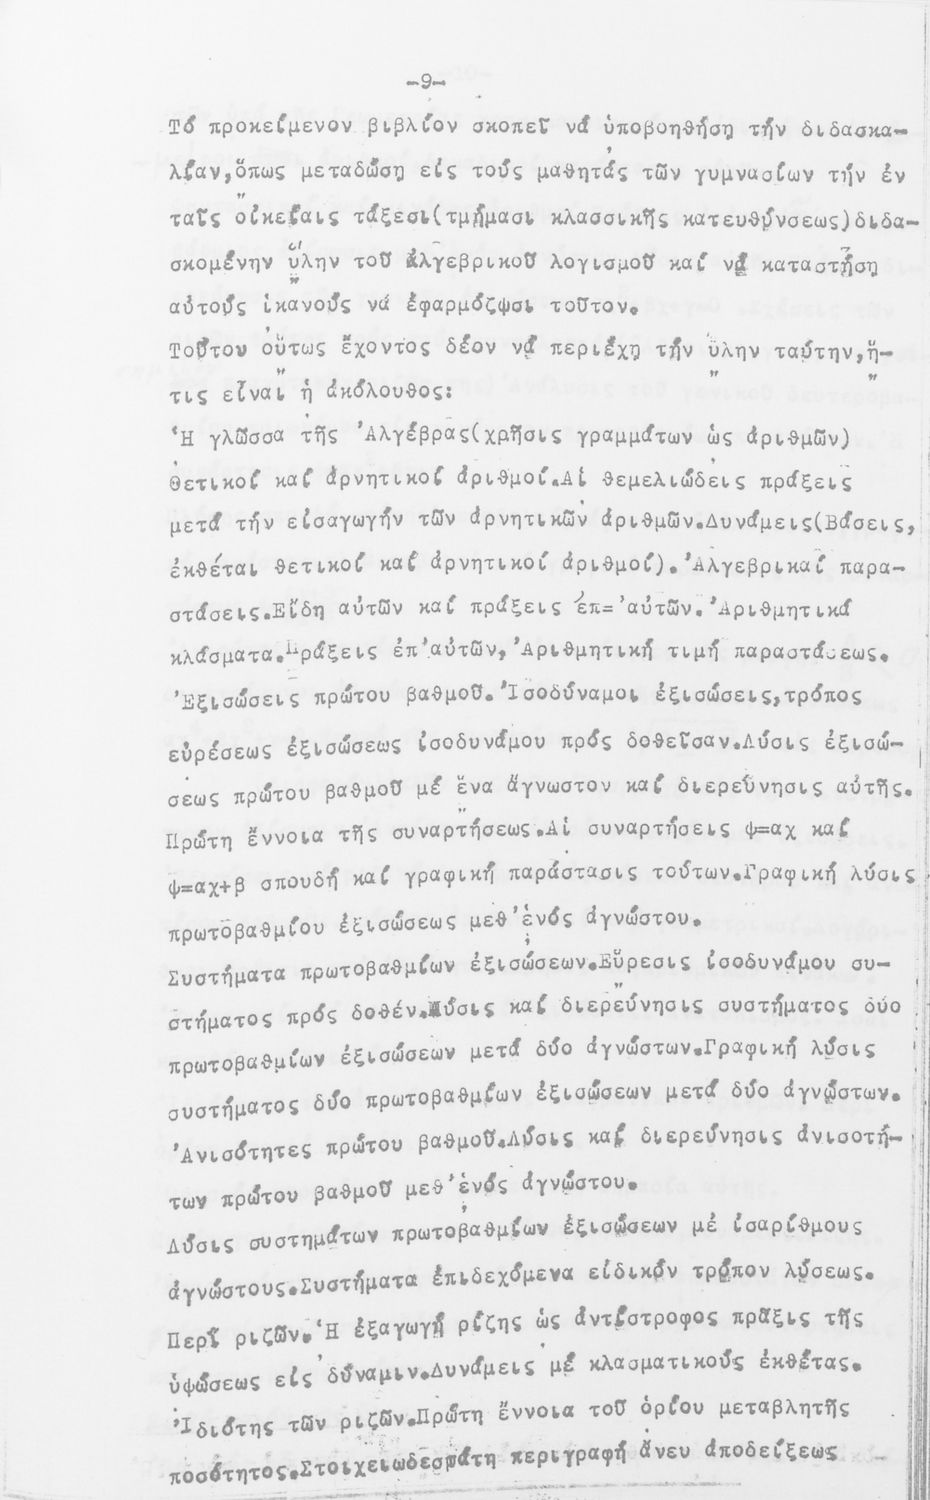 -9-
Τό προκείμενον βιβλίον σκοπεῖ νά ὑποβοηθήσῃ τήν διδασκα-
λίαν,ὅπως μεταδώσῃ εἰς τούς μαθητάς τῶν γυμνασίων τήν ἐν
ταῖς οἰκείαις τάξεσι(τμήμασι κλασσικῆς κατευθύνσεως)διδα-
σκομένην ὕλην τοῦ ἀλγεβρικοῦ λογισμοῦ καί νά καταστήσῃ
αὐτούς ἱκανούς νά ἐφαρμόζωσι τοῦτον.
Τούτου οὕτως ἔχοντος δέον νά περιέχῃ τήν ὕλην ταύτην,ἥ-
τις εἶναι ἡ ἀκόλουθος:
Ἡ γλῶσσα τῆς Ἀλγέβρας(χρῆσις γραμμάτων ὡς ἀριθμῶν)
Θετικοί καί ἀρνητικοί ἀριθμοί.Αἱ θεμελιώδεις πράξεις
μετά τήν εἰσαγωγήν τῶν ἀρνητικῶν ἀριθμῶν.Δυνάμεις(Βάσεις,
ἐκθέται θετικοί καί ἀρνητικοί ἀριθμοί).Ἀλγεβρικαί παρα-
στάσεις.Εἴδη αὐτῶν καί πράξεις ἐπ=᾿αὐτῶν.Ἀριθμητικά
κλάσματα.Πράξεις ἐπ᾿αὐτῶν,Ἀριθμητική τιμή παραστάσεως.
Ἐξισώσεις πρώτου βαθμοῦ.Ἰσοδύναμοι ἐξισώσεις,τρόπος
εὑρέσεως ἐξισώσεως ἰσοδυνάμου πρός δοθεῖσαν.Λύσις ἐξισώ-
σεως πρώτου βαθμοῦ μέ ἕνα ἄγνωστον καί διερεύνησις αὐτῆς.
Πρώτη ἔννοια τῆς συναρτήσεως.Αἱ συναρτήσεις ψ=αχ καί
ψ=αχ+β σπουδή καί γραφική παράστασις τούτων.Γραφική λύσις
πρωτοβαθμίου ἐξισώσεως μεθ᾿ἑνός ἀγνώστου.
Συστήματα πρωτοβαθμίων ἐξισώσεων.Εὕρεσις ἰσοδυνάμου συ-
στήματος πρός δοθέν.Λύσις καί διερεύνησις συστήματος δύο
πρωτοβαθμίων ἐξισώσεων μετά δύο ἀγνώστων.Γραφική λύσις
συστήματος δύο πρωτοβαθμίων ἐξισώσεων μετά δύο ἀγνώστων.
Ἀνισότητες πρώτου βαθμοῦ.Λύσις καί διερεύνησις ἀνισοτή-
των πρώτου βαθμοῦ μεθ᾿ἑνός ἀγνώστου.
Λύσις συστημάτων πρωτοβαθμίων ἐξισώσεων μέ ἰσαρίθμους
ἀγνώστους.Συστήματα ἐπιδεχόμενα εἰδικόν τρόπον λύσεως.
Περί ριζῶν.Ἡ ἐξαγωγή ρίζης ὡς ἀντίστροφος πρᾶξις τῆς
ὑψώσεως εἰς δύναμιν.Δυνάμεις μέ κλασματικούς ἐκθέτας.
Ἰδιότης τῶν ριζῶν.Πρώτη ἔννοια τοῦ ὁρίου μεταβλητῆς
ποσότητος.Στοιχειωδεστάτη περιγραφή ἄνευ ἀποδείξεως